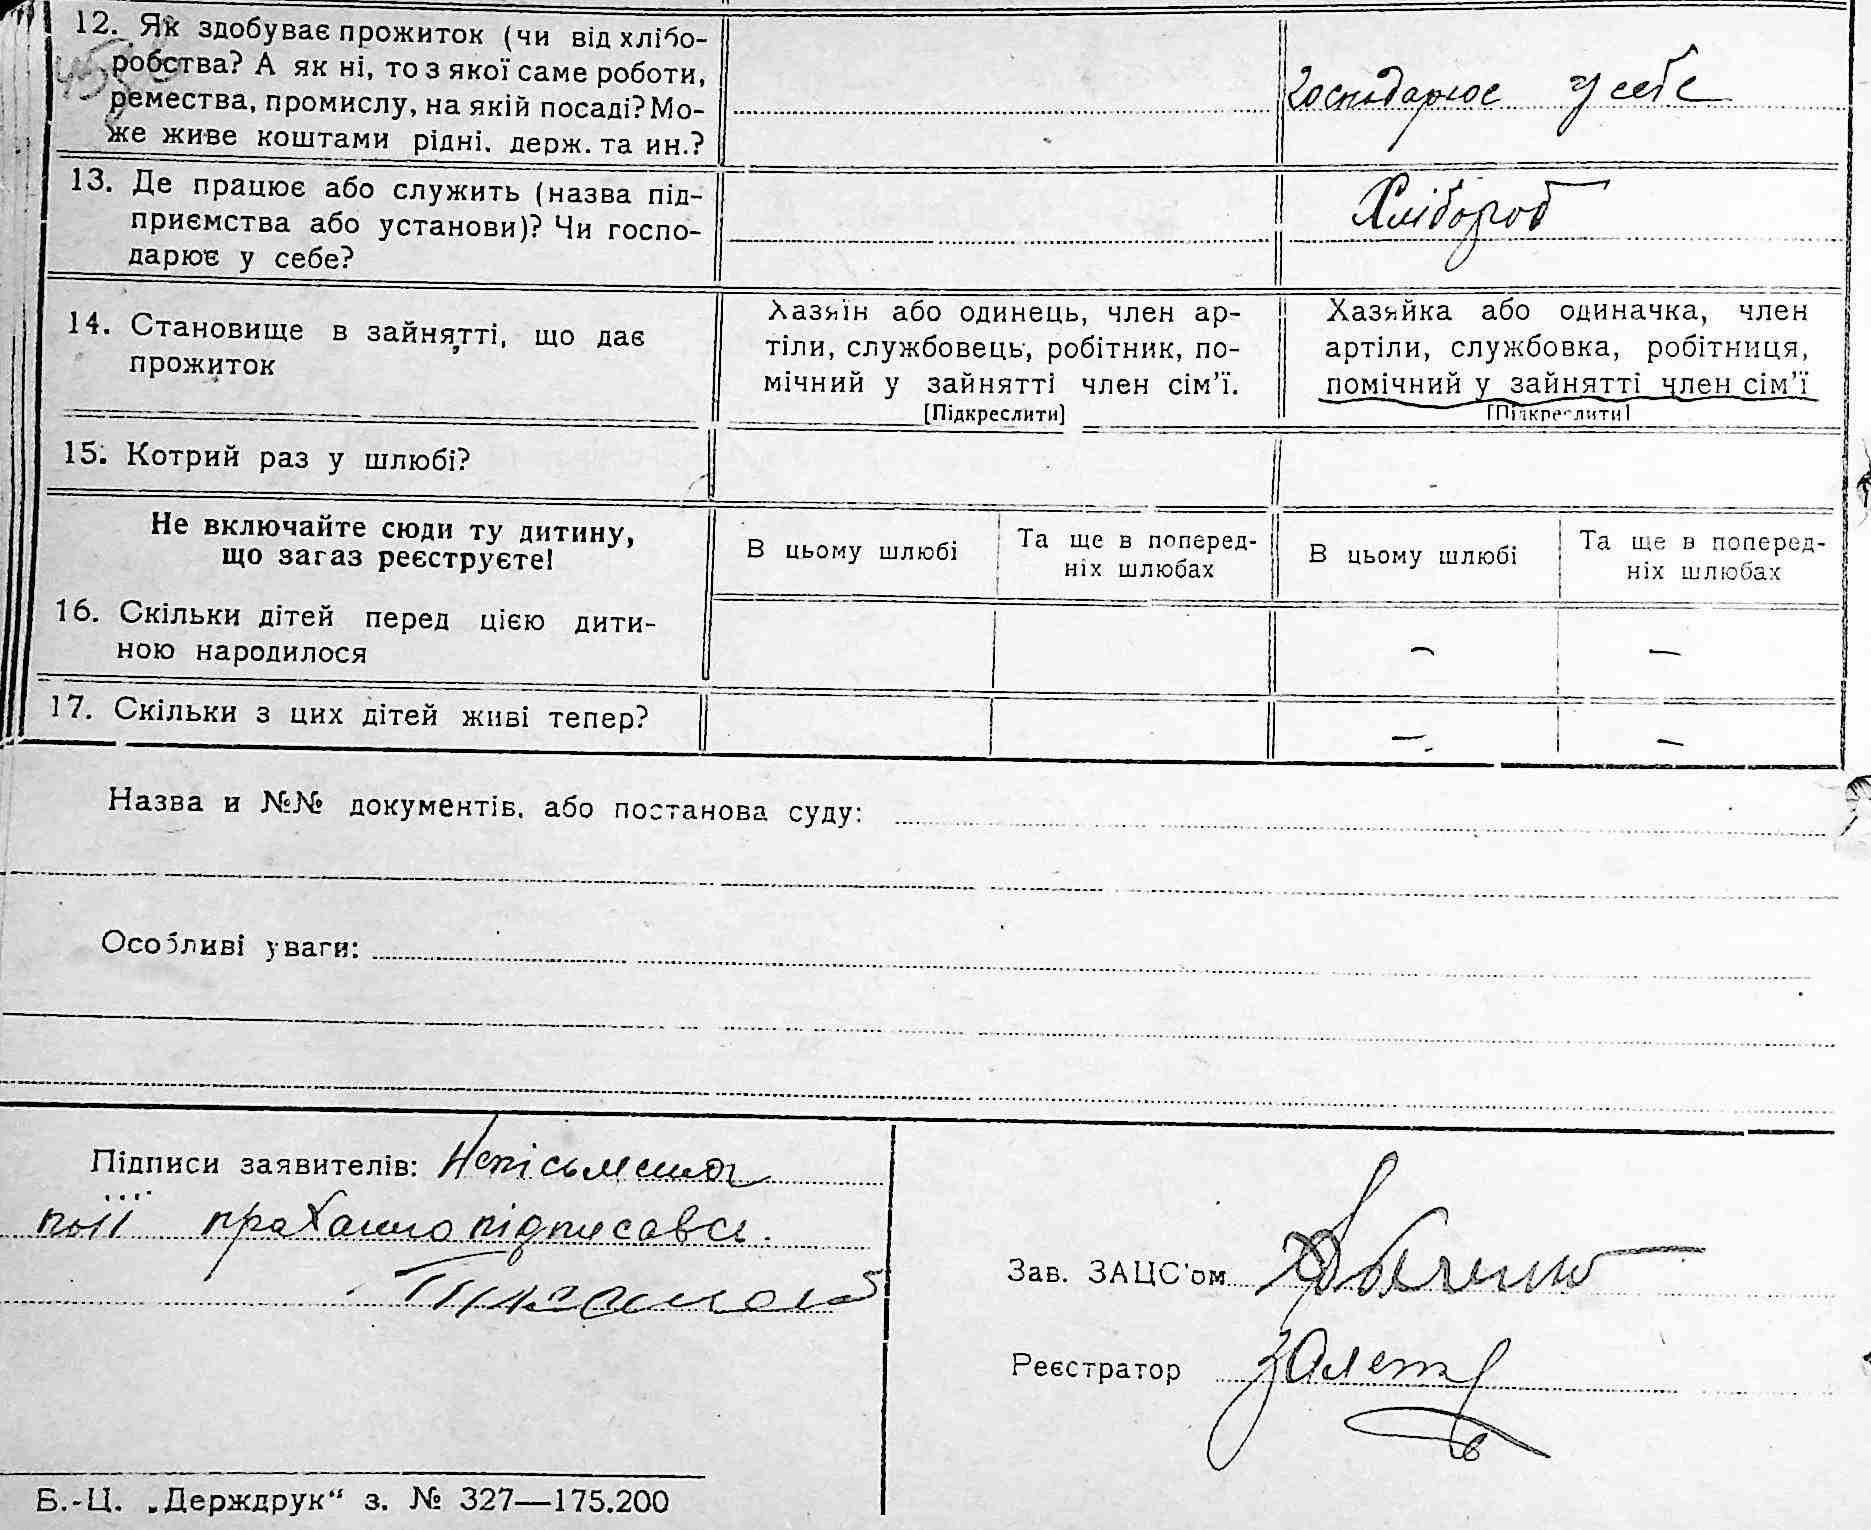 12. Як здобуває прожиток (чи від хлібо-
робства? А як ні, то з якої саме роботи,
ремества, промислу, на якій посаді? Мо-
же живе коштами рідні, держ. та ин.?
господарює у себе
13. Де працює або служить (назва під-
приємства або установи)? Чи госпо-
дарює у себе?
Хлібороб
14. Становище в зайнятті, що дає
прожиток
Хазяїн або одинець, член ар-
тіли, службовець, робітник, по-
мічний у зайнятті член сім’ї.
[Підкреслити]
Хазяйка або одиначка, член
артіли, службовка, робітниця,
помічний у зайнятті член сім’ї
[Підкреслити]
15. Котрий раз у шлюбі?
Не включайте сюди ту дитину,
що загаз реєструєте!
В цьому шлюбі
Та ще в поперед-
ніх шлюбах
В цьому шлюбі
Та ще в поперед-
ніх шлюбах
16. Скільки дітей перед цією дити-
ною народилося
— —
17. Скільки з цих дітей живі тепер?
— —
Назва и №№ документів, або постанова суду:
Особливі уваги:
Підписи заявителів: Неписьменна
по її проханню підписавсь
Зав. ЗАЦС'ом
Реєстратор
Б.-Ц. „Держдрук“ з. № 327—175.200